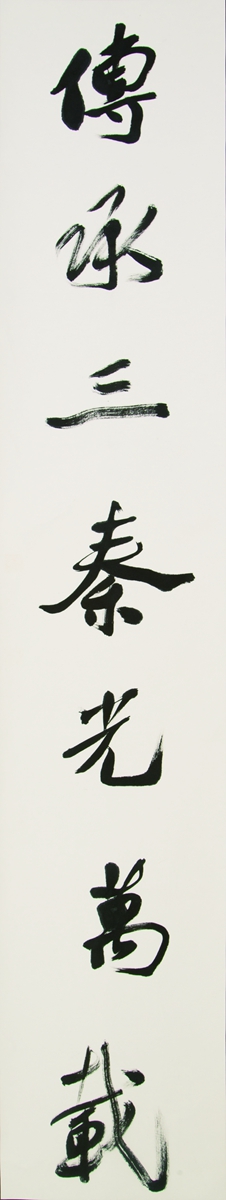 傳承三秦光萬載